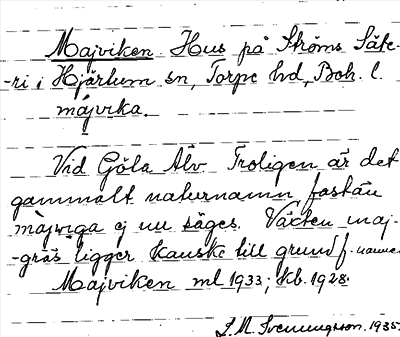 Majviken. Hus på Ströms Säte-
-ri i Hjärtum sn, Torpe hd, Boh. l.
májvıka.
Vid Göta Älv. Troligen är det
gammalt naturnamn fastän
májviga ej nu säges. Växten maj-
-gräs ligger kanske till grund f. namnet
Majviken ml 1933; kb. 1928.
S. M. Svenungsson. 1935.